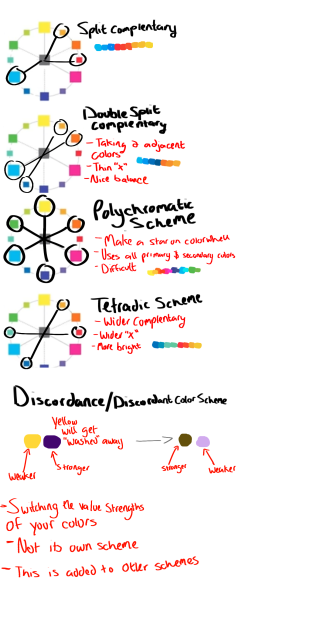 Split Complentary
Double Split
complentary
- Taking 2 adjacent
colors
- Thin "x"
- Nice balance
Polychromatic
Scheme
- Make a star on colorwheel
- Uses all primary & secondary colors
- Difficult
Tetradic Scheme
- Wider Complentary
- Wider "X"
- More bright
Discordance/Discordant Color Scheme
Yellow
will get
"washed" away
weaker
stronger
stronger
weaker
- Switching the value strengths
of your colors
- Not its own scheme
- This is added to other schemes